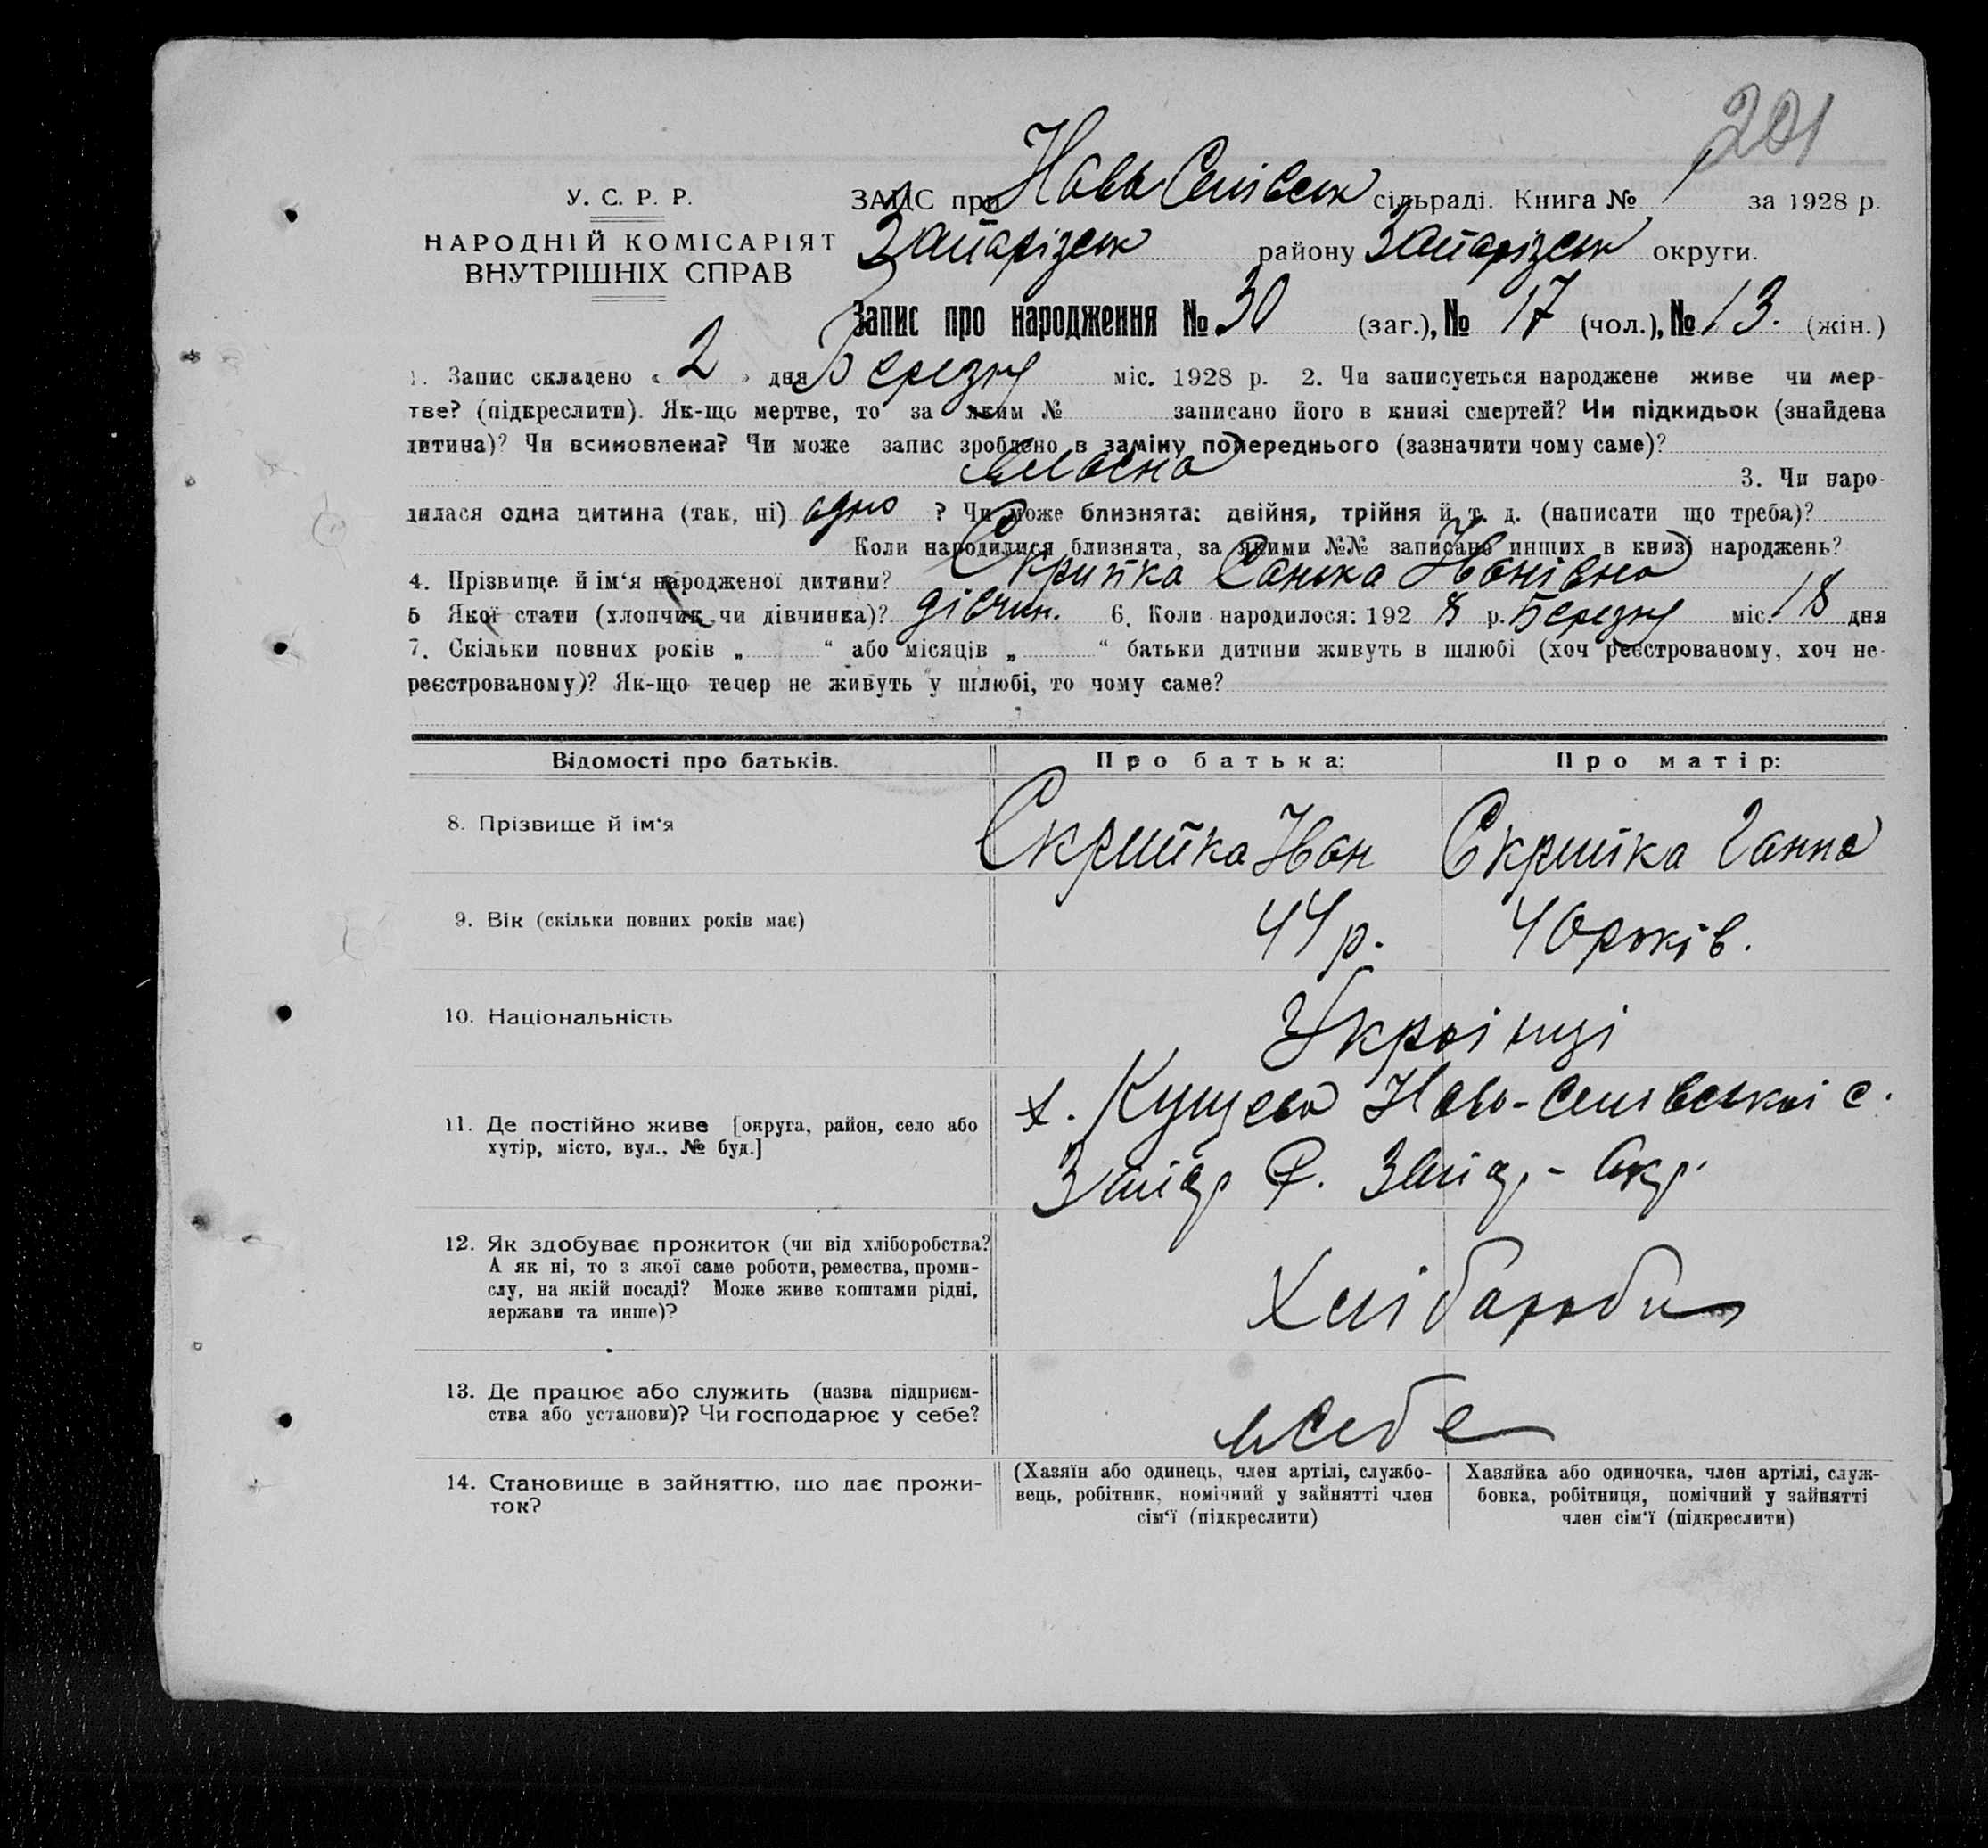 201
У. С. Р. Р.
НАРОДНІЙ КОМІСАРІЯТ
ВНУТРІШНІХ СПРАВ
ЗАГС при Ново Селівськ сільраді. Книга № 1 за 1928 р.
Запарізськ району Запарізськ округи.
Запис про народження № 30 (заг.), № 17 (чол.), № 13. (жін.)
1. Запис складено « 2 » дня Березня міс. 1928 р. 2. Чи записується народжене живе чи мер-
тве? (підкреслити). Як-що мертве, то за яким № записано його в книзі смертей? Чи підкидьок (знайдена
дитина)? Чи всиновлена? Чи може запис зроблено в заміну попереднього (зазначити чому саме)?
власна 3. Чи наро-
дилася одна дитина (так, ні) одно ? Чи може близнята: двійня, трійня й т. д. (написати що треба)?
Коли народилися близнята, за якими №№ записано инших в книзі народжень?
4. Прізвище й ім‘я народженої дитини? Скрипка Санька Іванівна
5 Якої стати (хлопчик чи дівчинка)? дівчин. 6. Коли народилося: 192 8 р. Березня міс. 18 дня
7. Скільки повних років „ “ або місяців „ “ батьки дитини живуть в шлюбі (хоч реєстрованому, хоч не-
реєстрованому)? Як-що тепер не живуть у шлюбі, то чому саме?
Відомості про батьків. Про батька: Про матір:
8. Прізвище й ім‘я Скрипка Іван Скрипка Ганна
9. Вік (скільки повних років має) 44 р. 40 років.
10. Національність Украінці
11. Де постійно живе [округа, район, село або
хутір, місто, вул., № буд.]
х. Кущева Ново-Селівськоі с.
Запор Р. Запор-Окр.
12. Як здобуває прожиток (чи від хліборобства?
А як ні, то з якої саме роботи, ремества, проми-
слу, на якій посаді? Може живе коштами рідні,
держави та инше)?
Хлібароби
13. Де працює або служить (назва підприєм-
ства або установи)? Чи господарює у себе?
у себе
14. Становище в зайняттю, що дає прожи-
ток?
(Хазяїн або одинець, член артілі, службо-
вець, робітник, помічний у зайнятті член
сім‘ї (підкреслити)
Хазяйка або одиночка, член артілі, служ-
бовка, робітниця, помічний у зайнятті
член сім‘ї (підкреслити)